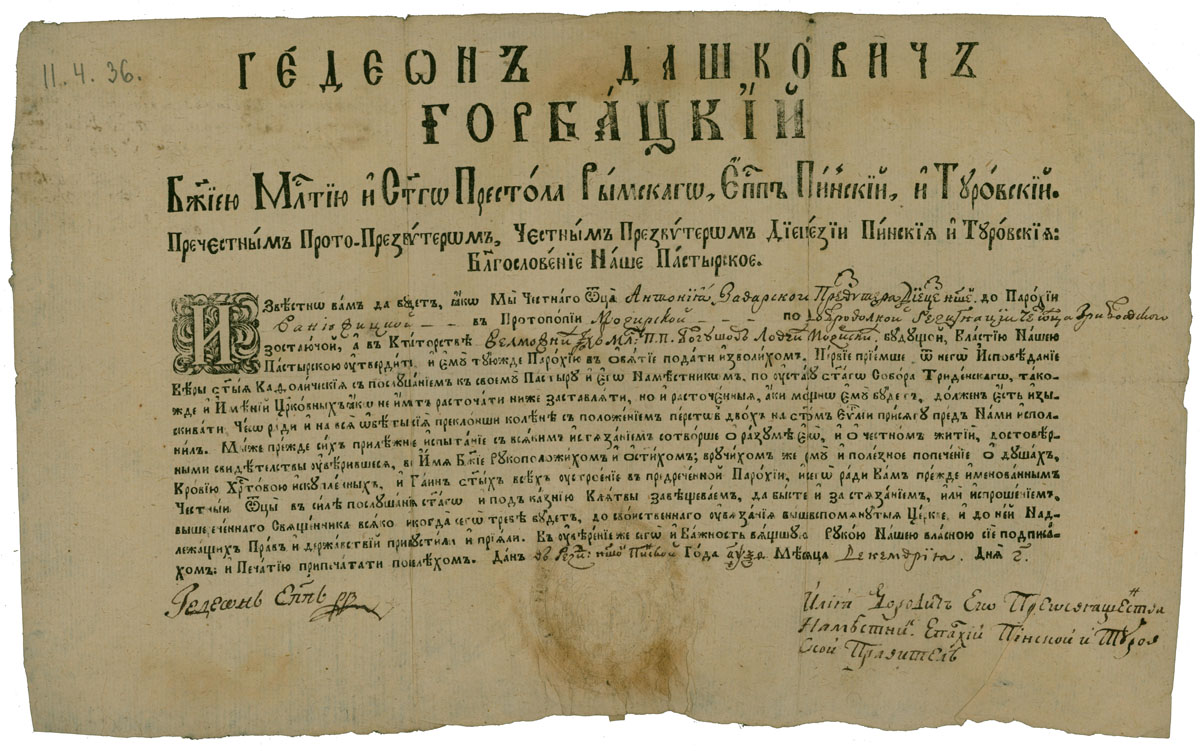 11. 4. 36.
ГЕ́ДЕѠНЪ ДАШКО́ВИЧЪ
ҐОРБА́ЦКЇЙ
Бж҃їею Млⷭ҇тїю и҆ Ст҃гѡ Престо́ла Ры́мскагѡ, Е҆пⷭ҇пъ Пи́нскїй, и҆ Туро́вскїй.
Пречестнымъ Прото-Презвѵ́терѡмъ, Честнымъ Презвѵ́терѡмъ Дїеце́зїи Пи́нскїѧ и҆ Туро́вскїѧ:
Бл҃гослове́нїе На́ше Па́стырское.
Извѣ́стнѡ ва́мъ да бу́детъ, ꙗ҆́кѡ Мы̀ Че́тнагѡ Ѻ҆ц҃а̀ Антонїѧ до Паро́хїи
въ Протопо́пїи Мозирской по
зостаючо́й, а҆ въ Кти́торствѣ бу́дущои, Вла́стїю На́шею
Па́стырскою оу҆тверди́ти, и҆ є҆мꙋ̀ туюжде Паро́хїю въ ѻ҆бѧ́тїе пода́ти и҆зво́лихомъ. Пе́рвїе прїе́мше ѿ негѡ̀ И҆сповѣ́данїе
Вѣ́ры ст҃ы́ѧ Каѳоли́ческїѧ съ послуша́нїемъ къ своему̀ Па́стыру и҆ є҆гѡ̀ Намѣ́стникѡмъ, по оу҆ста́ву ст҃а́гѡ Собо́ра Триде́нскагѡ, та́ко-
жде и҆ И҆мѣ́нїй Цр҃ко́вныхъ ꙗ҆́кѡ не и҆́мать расточа́ти нижѐ заставлѧ́ти, но и҆ расточе́нныѧ, а҆́ки мо́щно є҆му̀ бу́детъ, до́лженъ є҆́сть и҆зы-
скива́ти, Чесѡ̀ ра́ди и҆ на всѧ̑ ѡ҆бѣ́ты сїѧ̑ прекло́нши колѣ́нѣ съ положе́нїемъ перстѡ́въ дво́хъ на ст҃о́мъ Є҆ѵⷢ҇лїи присѧ́гу пред̾ На́ми и҆спо́л-
ни́лъ. Мы́же пре́жде си́хъ прилѣ́жне и҆спыта́нїе съ всѧ́кимъ и҆стѧза́нїемъ сотво́рше ѡ҆ ра́зумѣ є҆гѡ̀, и҆ ѡ҆ че́стномъ житїѝ, достовѣ́р-
ными свидѣ́телствы оу҆вѣ́рившесѧ, въ И҆́мѧ Бж҃їе Рукоположи́хомъ и҆ ѻ҆ст҃и́хомъ; вручи́хомъ же є҆му̀ и҆ поле́зное попече́нїе ѡ҆ ду́шахъ,
Кро́вїю Хрⷭ҇то́вою и҆скупле́нныхъ, и҆ Та́инъ ст҃ы́хъ всѣ́хъ оу҆строе́нїе въ предрече́нной Паро́хїи, и҆ сегѡ̀ ра́ди Ва́мъ пре́жде и҆менова́ннымъ
Честны́и Ѻ҆тцы̀ въ си́лѣ послуша́нїѧ ст҃а́гѡ и҆ под̾ ка́знїю Клѧ́твы завѣщева́емъ, да бы́сте и҆ за стѧза́нїемъ, и҆лѝ и҆спроше́нїемъ,
вышерече́ннагѡ Свѧще́нника всѧ́ко и҆когда̀ сегѡ̀ тре́бѣ бу́детъ, до сво́йственнагѡ оу҆вѧза́нїѧ вышвспомѧну́тыѧ Це́ркве, и҆ до не́й Над-
лежа́щихъ Пра́въ и҆ держа́вствїй припусти́ли и҆ прїѧ́ли. Въ оу҆вѣре́нїе же сегѡ̀ и҆ Ва́жность вѧ́щшую Руко́ю На́шею вла́сною сїѐ подписа́-
хомъ: и҆ Печа́тїю припеча́тати повелѣ́хомъ. Да́нъ Го́да Мѣ́сѧца Декемврїа. Днѧ̀
Гедеѡнъ Епⷭ҇пъ
Его
Намѣстни: Епархїй Пѣнской и Туров
ской